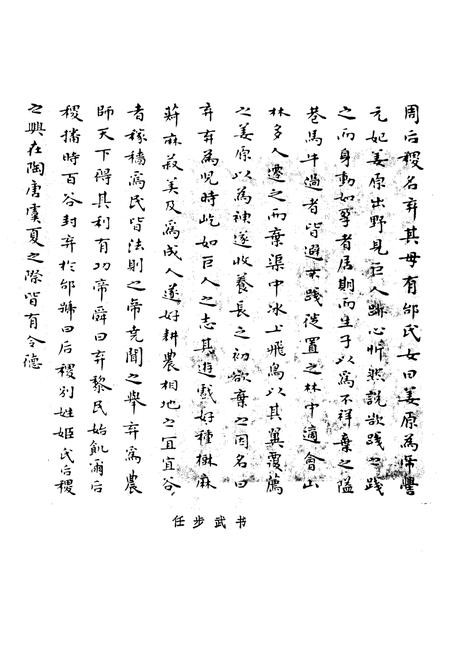 周后稷名弃其母有邰氏女曰姜原為帝嚳
元妃姜原出野見巨人跡心忻然說欲踐之踐
之而身動如孕者居期而生子以為不祥棄之隘
巷馬牛過者皆避不踐徙置之林中適會山
林多人遷之而棄渠中冰上飛鳥以其翼覆薦
之姜原以為神遂收養長之初欲棄之因名曰
弃弃為兒時屹如巨人之志其遊戲好種樹麻
菽麻菽美及為成人遂好耕農相地之宜宜谷
者稼穡焉民皆法則之帝堯聞之舉弃為農
師天下得其利有功帝舜曰弃黎民始飢爾后
稷播時百谷封弃於邰號曰后稷別姓姬氏后稷
之興在陶唐虞夏之際皆有令德
任步武书